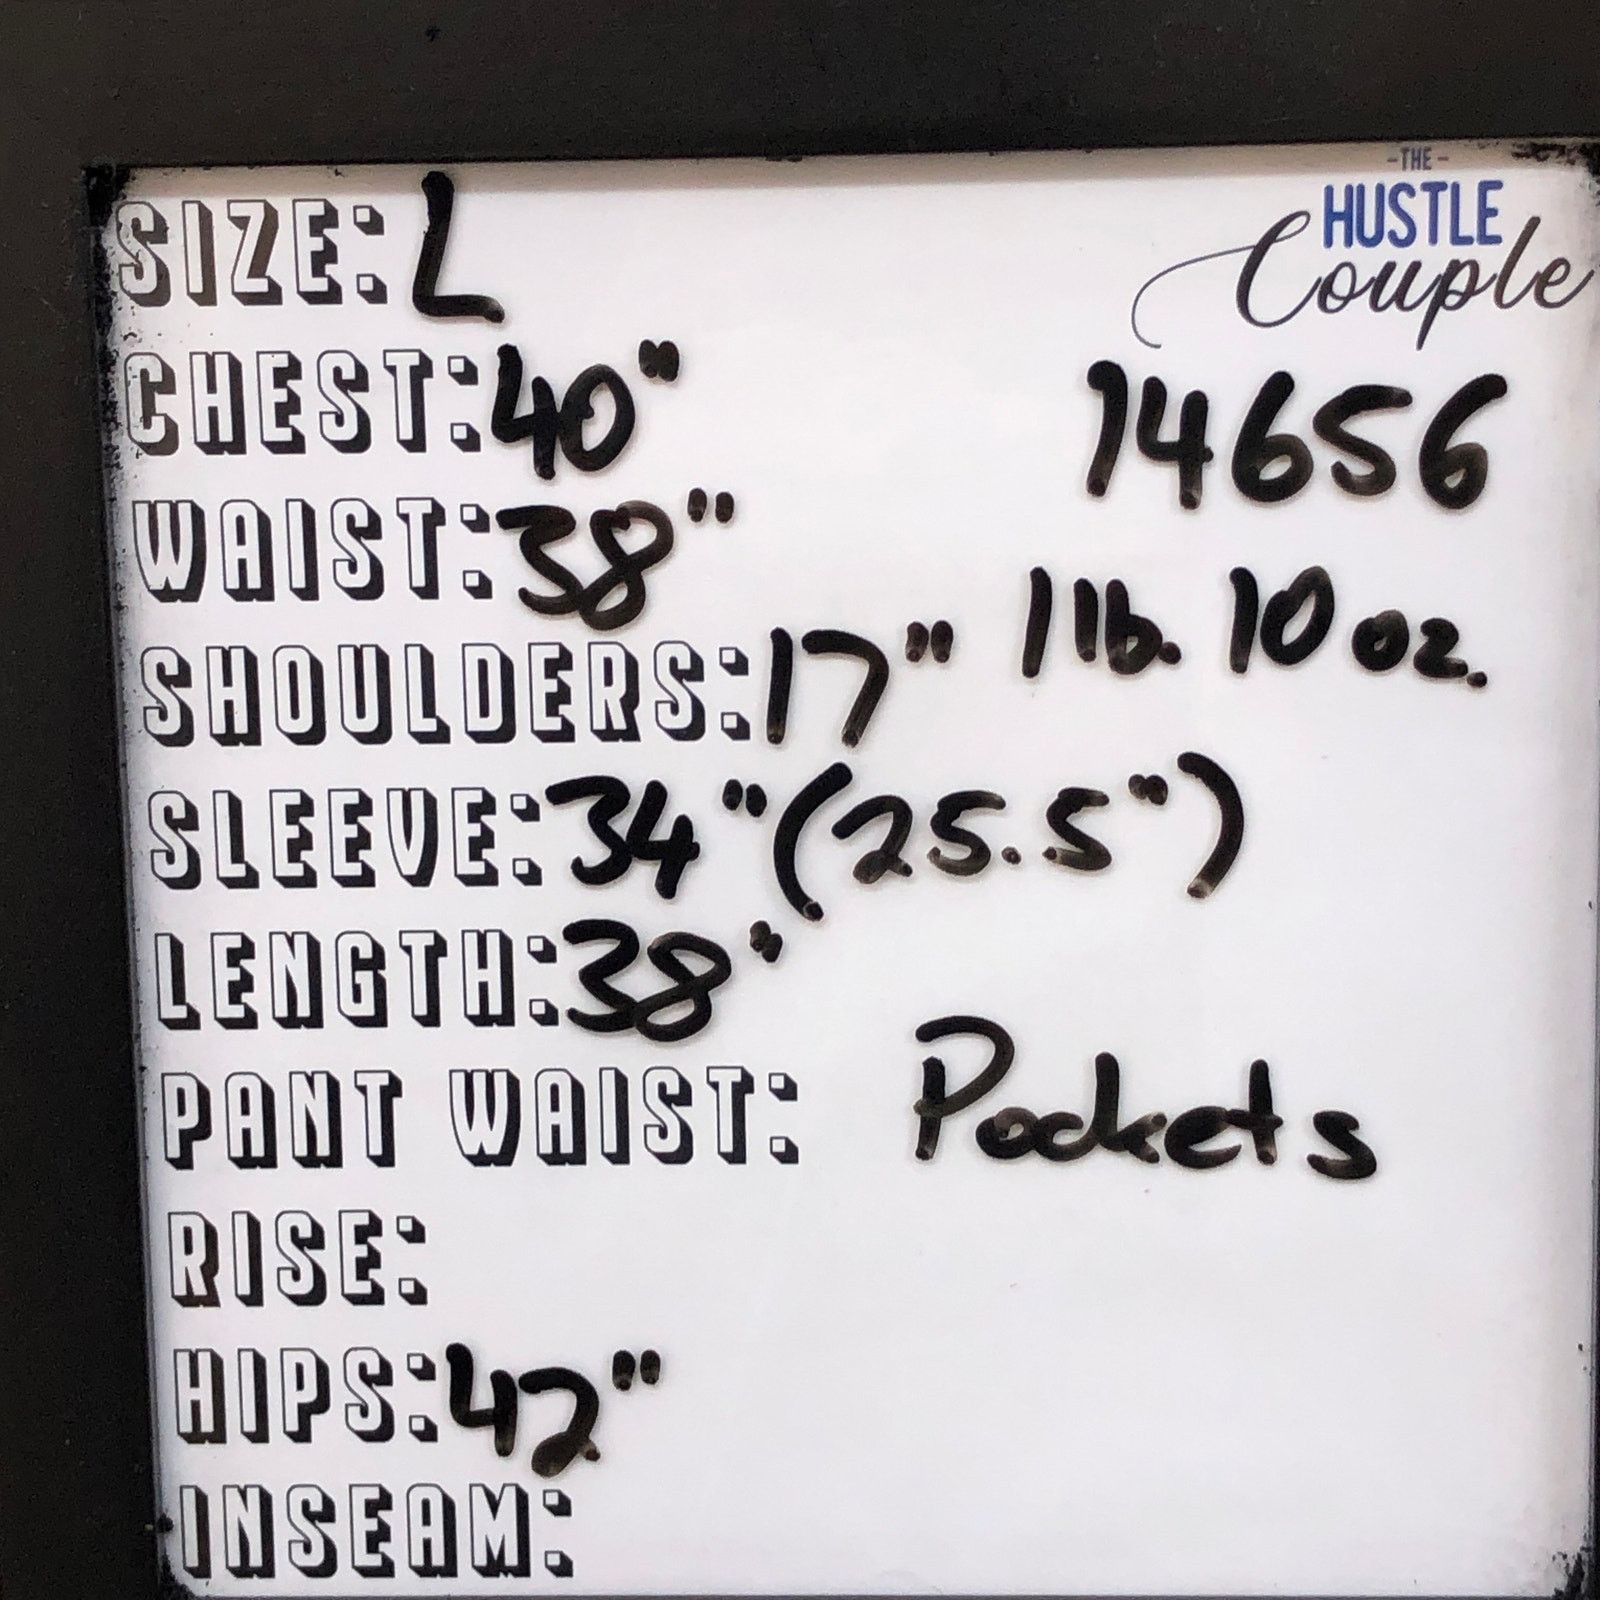 -THE-
HUSTLE
Couple
SIZE: L
CHEST: 40"
14656
WAIST: 38"
1 lb. 10 oz.
SHOULDERS: 17"
SLEEVE: 34" (25.5")
LENGTH: 38"
PANT WAIST:
Pockets
RISE:
HIPS: 42"
INSEAM: